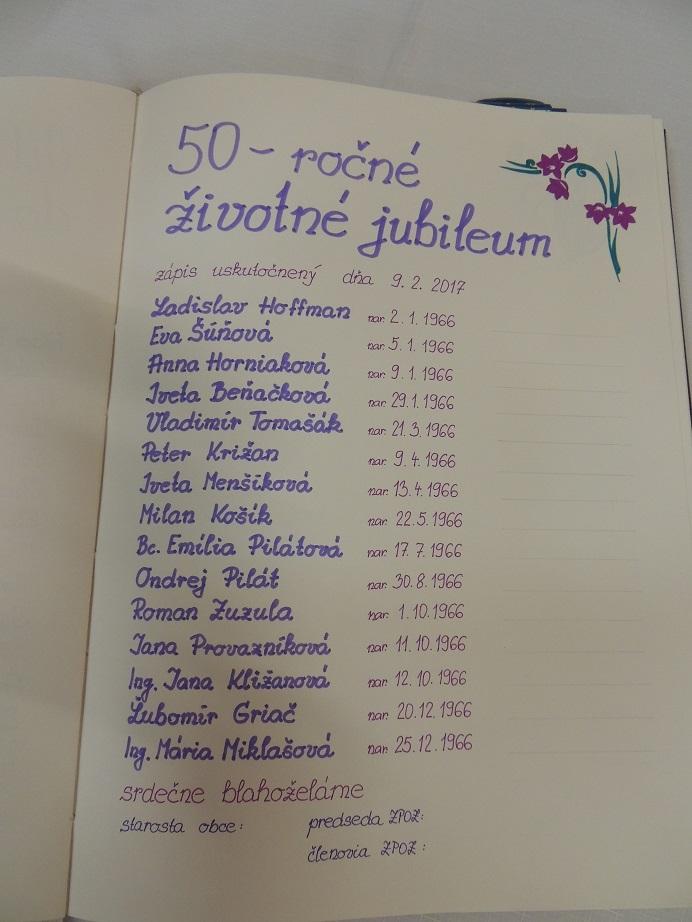 50 - ročné
životné jubileum
zápis uskutočnený dňa 9. 2. 2017
Ladislav Hoffman nar. 2. 1. 1966
Eva Šúňová nar. 5. 1. 1966
Anna Horniaková nar. 9. 1. 1966
Iveta Beňačková nar. 29. 1. 1966
Vladimír Tomašák nar. 21. 3. 1966
Peter Križan nar. 9. 4. 1966
Iveta Menšíková nar. 13. 4. 1966
Milan Košík nar. 22. 5. 1966
Bc. Emília Pilátová nar. 17. 7. 1966
Ondrej Pilát nar. 30. 8. 1966
Roman Zuzula nar. 1. 10. 1966
Jana Provazníková nar. 11. 10. 1966
Ing. Jana Kližanová nar. 12. 10. 1966
Ľubomír Griač nar. 20. 12. 1966
Ing. Mária Miklašová nar. 25. 12. 1966
srdečne blahoželáme
starosta obce: predseda ZPOZ:
členovia ZPOZ: